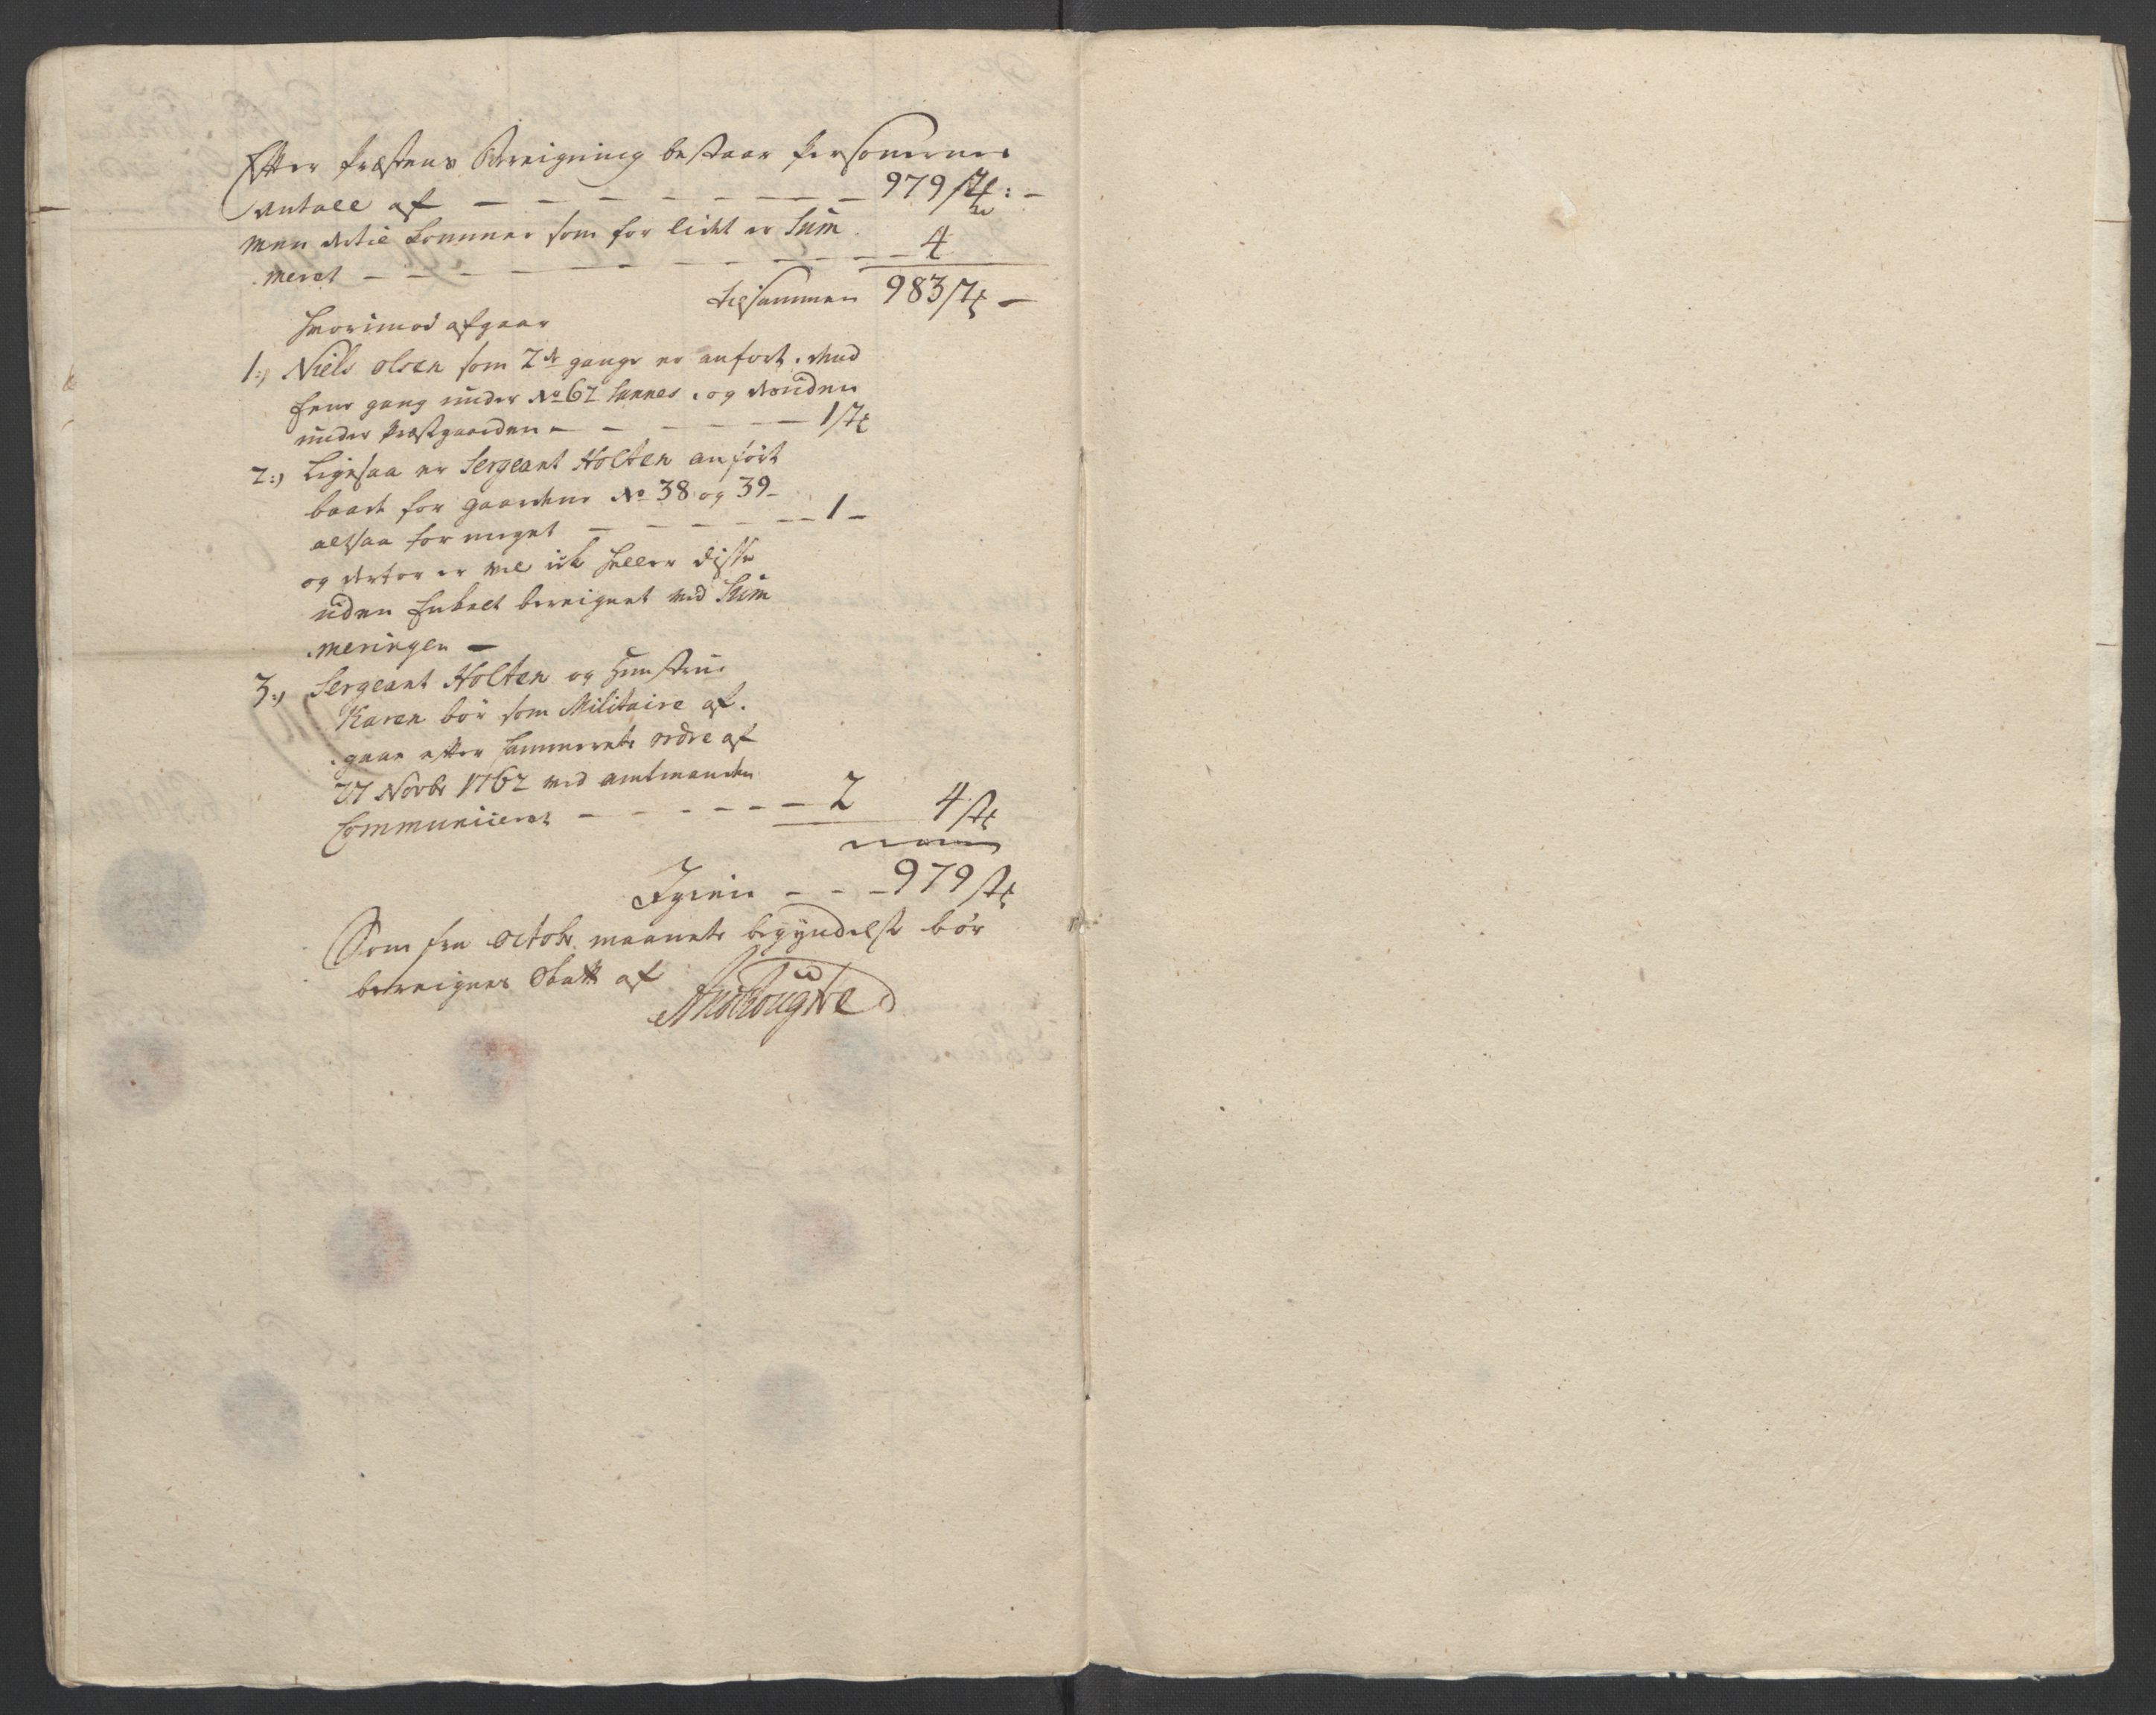 Efter Præstens Bereigning bestaar Personernes
Antall af - - - - - - - 979 St: -
men dertil kommer som for lidet er Sum
meret - - - - - - - - - 4
tilsammen 983 St -
Hvorimod afgaar
1:, Niels Olsen som 2de gange er anført,
Eene gang under No 62 , og desuden
under Præstgaarden - - - - - 1 St
2:, Ligesaa er Sergeant Holten anført
baade for Gaardene No 38 og 39 -
altsaa for meget - - - - - 1 -
og derfor er vel ik heller disse
uden Enkelt bereignet ved Sum
meringen -
3:, Sergeant Holten og Hustrue
Karen bör som Militaire af-
gaae efter Cammerets ordre af
27 Novbr 1762 ved Amtmanden
Communiceret - - - - - 2 4 St
Igien - - - 979 St
Som fra Octobr maaneds begyndelse bör
bereignes Skatt af